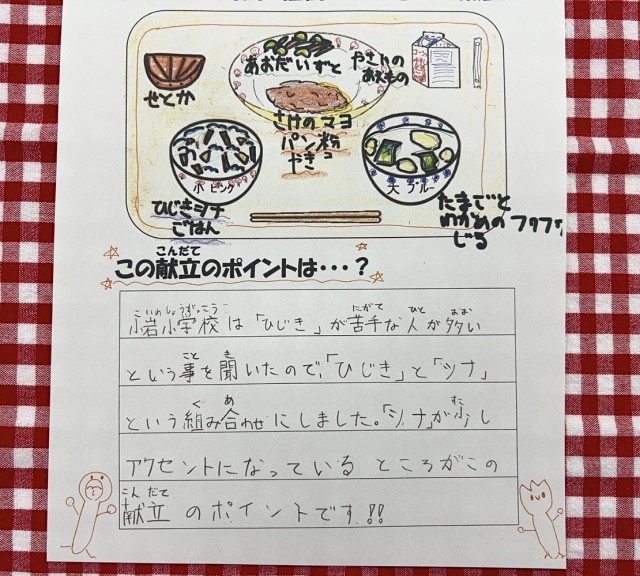 あおだいずと
やさいの
あえもの
せとか
さけのマヨ
パン粉
やき
小ピンク
大ブルー
ひじきツナ
ごはん
たまごと
わかめの
フワフワ
じる
こんだて
この献立のポイントは・・・?
こいわしょうがっこう
にがて
ひと
おお
小岩小学校は「ひじき」が苦手な人が多い
こと
き
という事を聞いたので、「ひじき」と「ツナ」
く
あ
すこ
という組み合わせにしました。「ツナ」が少し
アクセントになっているところがこの
こんだて
献立のポイントです!!